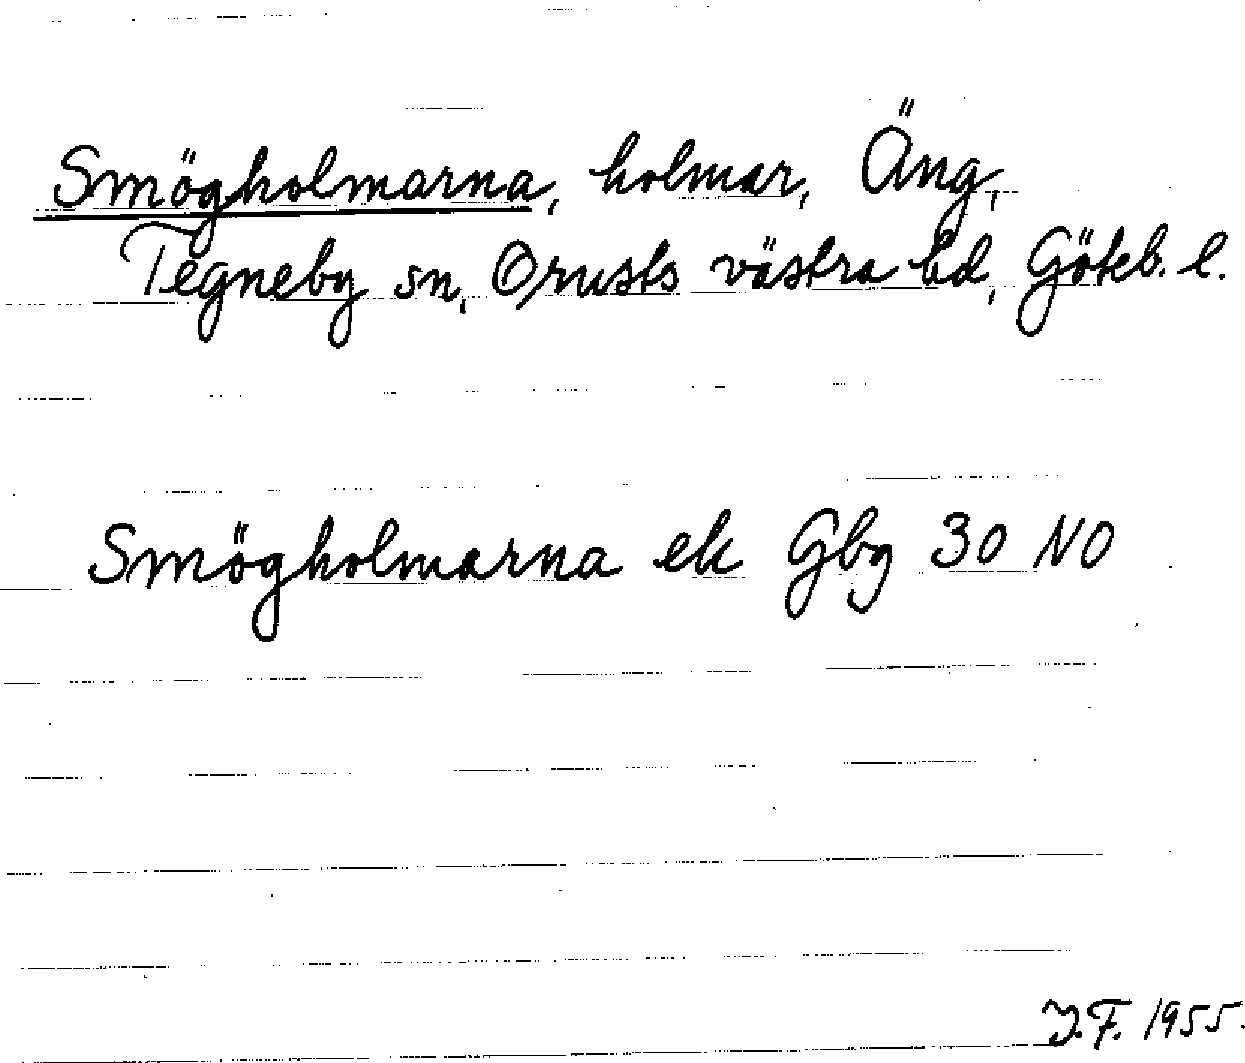 Smögholmarna, holmar, Äng,
Tegneby sn, Orusts västra hd, Göteb. l.
Smögholmarna ek Gbg 30 NO
J.F. 1955.